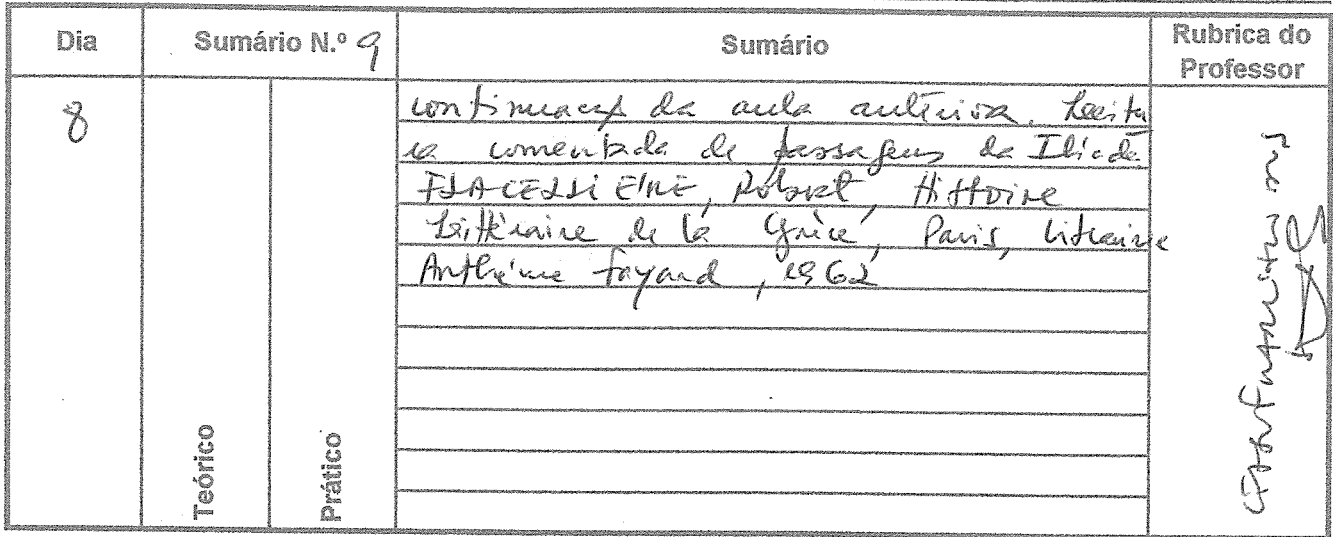 Dia
Sumário N.º 9
Sumário
Rubrica do
Professor
8
Teórico
Prático
continuação da aula anterior. Leitu
ra comentada de passagens da Ilíada
FLACELLIÈRE, Robert, Histoire
Littéraire de la Grèce, Paris, Librairie
Arthème Fayard, 1962